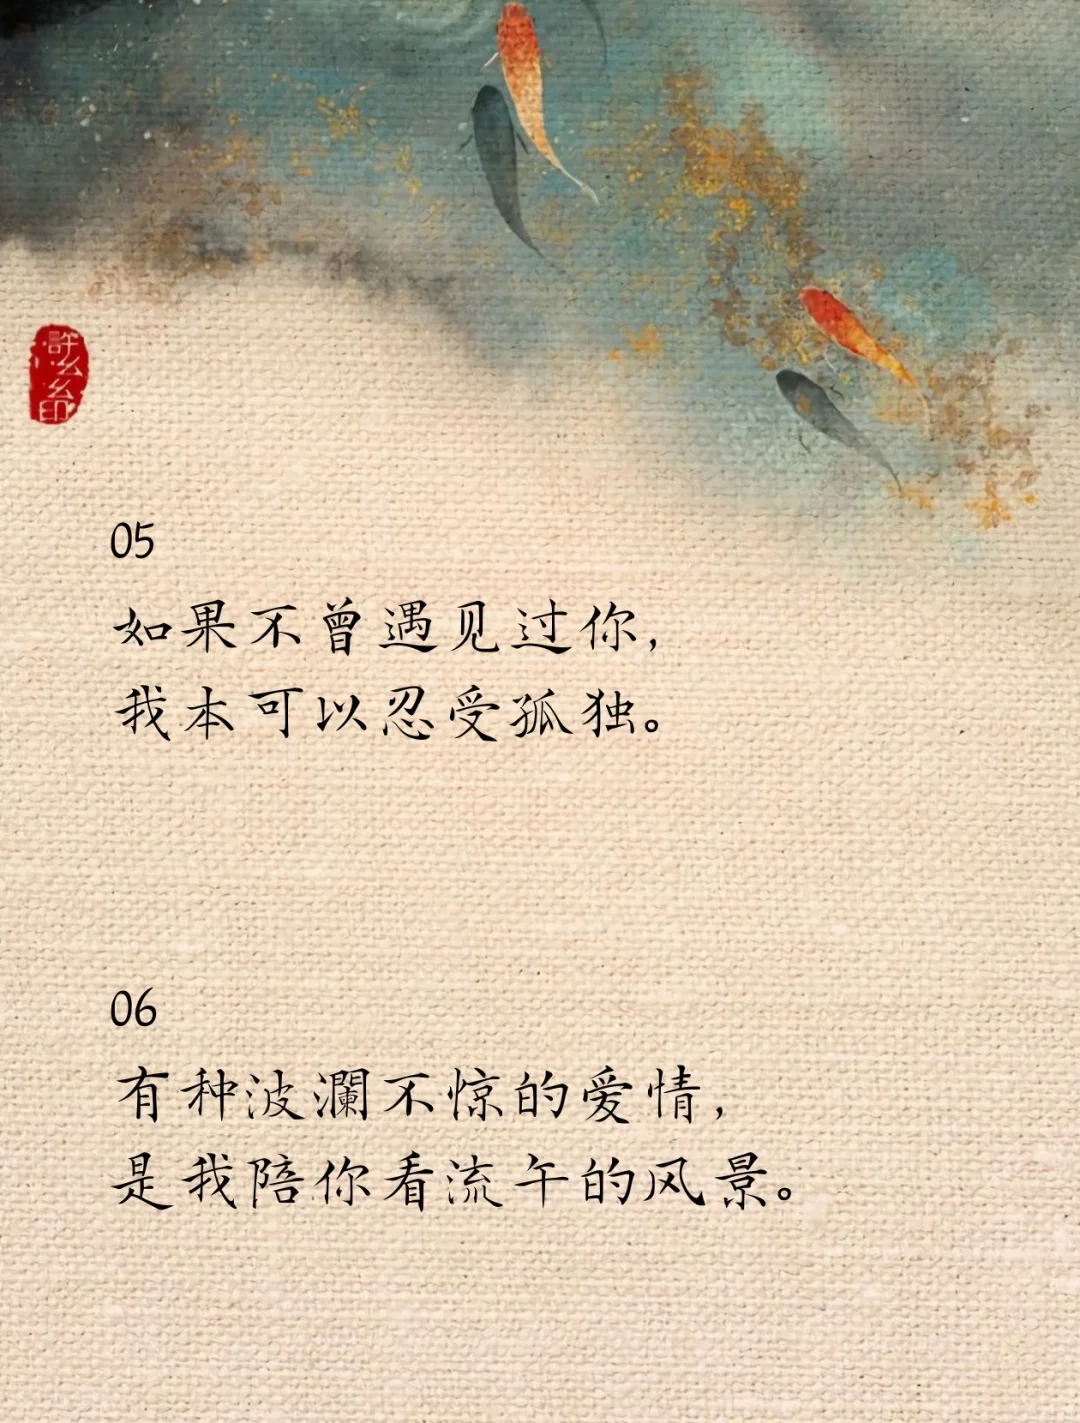 許么么印
05
如果不曾遇见过你，
我本可以忍受孤独。
06
有种波澜不惊的爱情，
是我陪你看流午的风景。